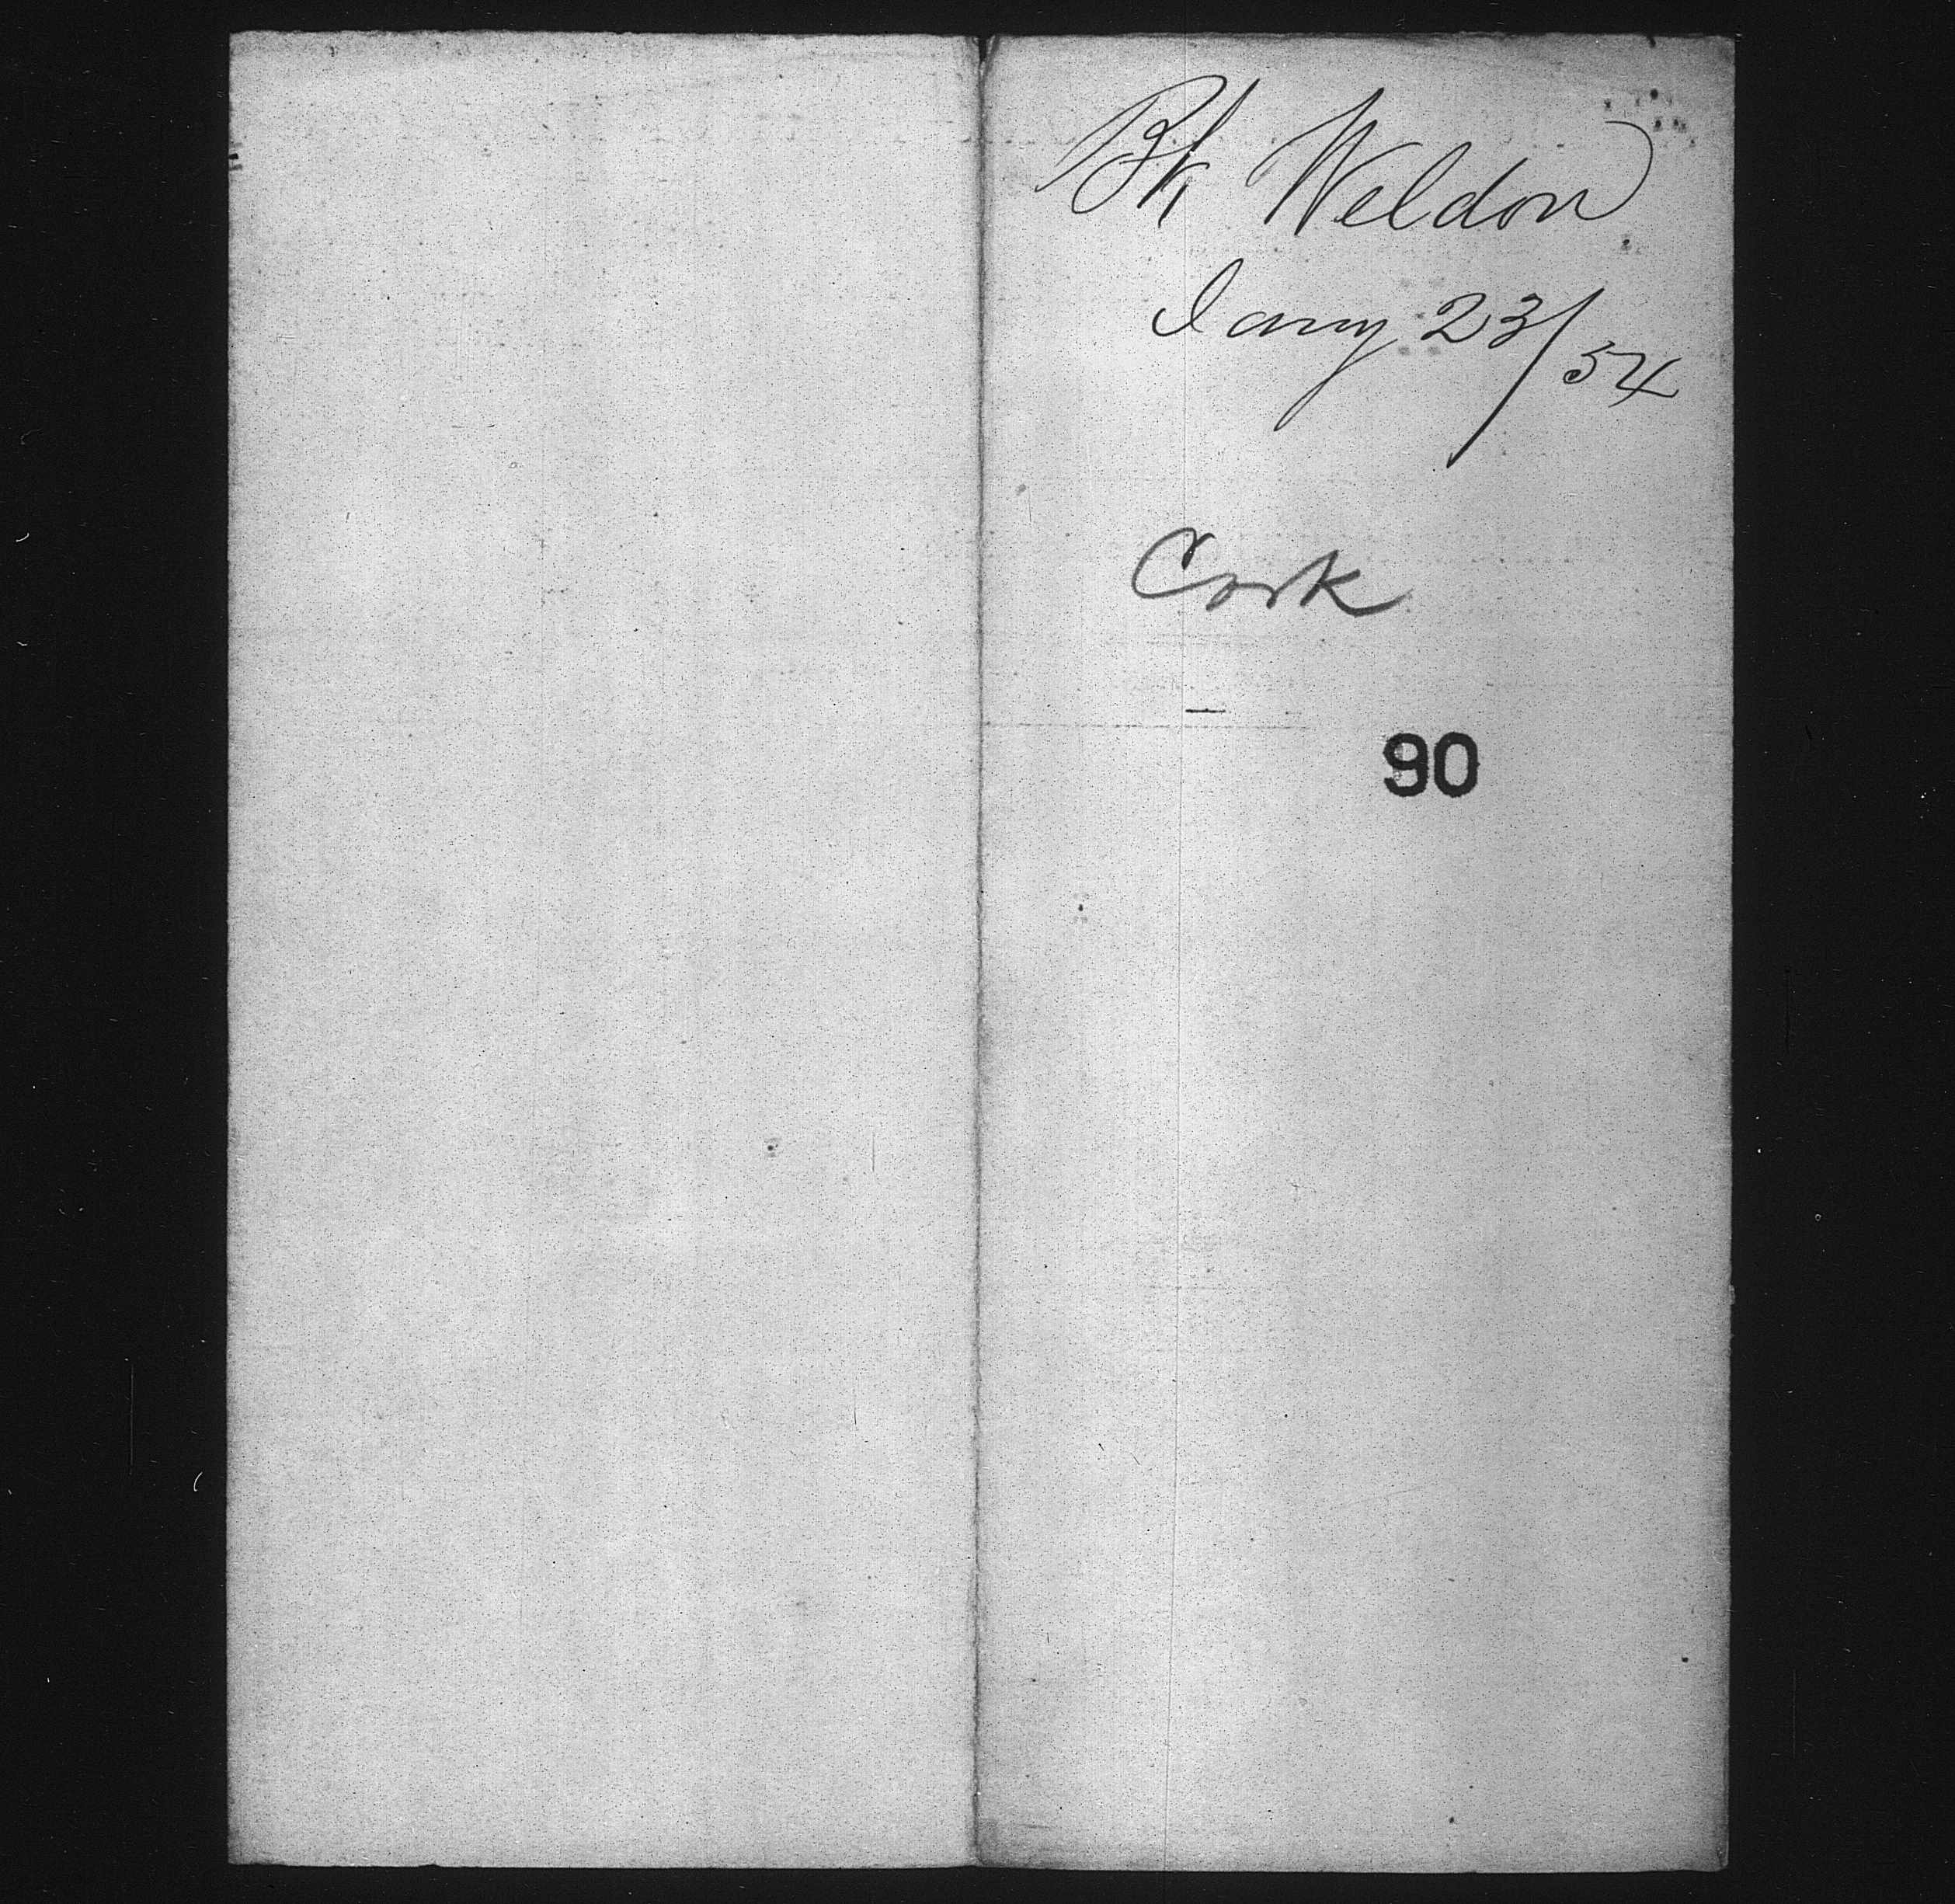 Bk Weldon
Jany 23/54
Cork
90